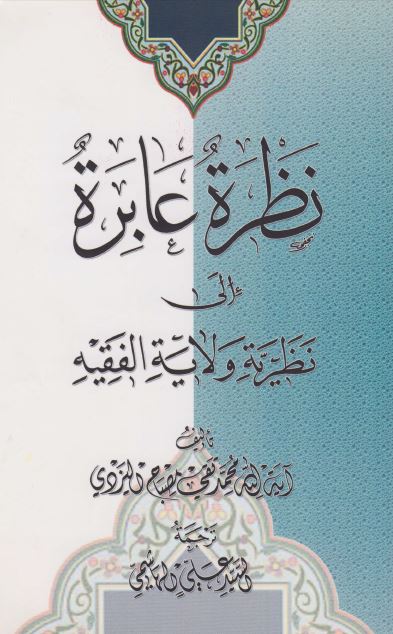 نَظْرَةٌ عَابِرَةٌ
إلى
نَظَرِيَّةِ وِلَايَةِ الفَقِيهِ
تأليف
آية الله محمد تقي مصباح اليزدي
ترجمة
السيد علي الهاشمي